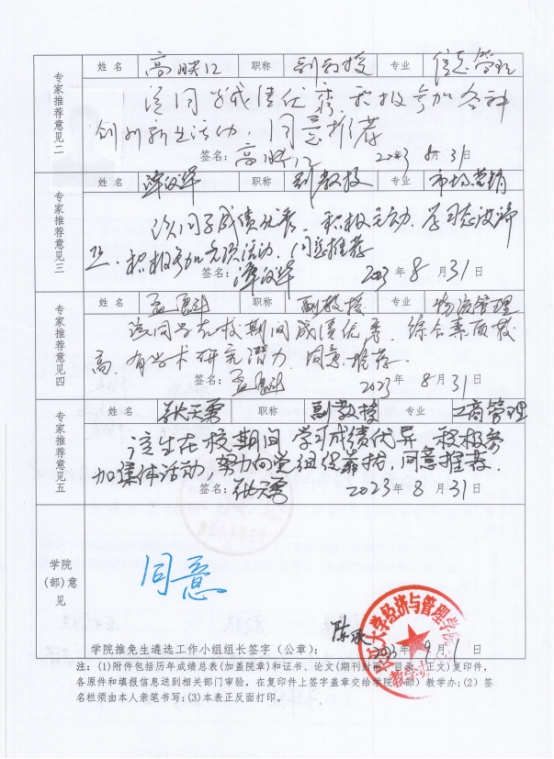 专家推荐意见二
姓名 高映江 职称 副教授 专业 信息管理
该同学成绩优秀,积极参加各种
创新活动,同意推荐
签名:高映江 2023 8月31日
专家推荐意见三
姓名 职称 副教授 专业 市场营销
该同学成绩优秀,积极主动,学习态度端
正,积极参加各项活动,同意推荐
签名: 2023年8月31日
专家推荐意见四
姓名 孟 职称 副教授 专业 物流管理
该同学在校期间成绩优秀,综合素质较
高,有学术研究潜力,同意推荐。
签名:孟 2023年8月31日
专家推荐意见五
姓名 张天勇 职称 副教授 专业 工商管理
该生在校期间学习成绩优异,积极参
加集体活动,努力向党组织靠拢,同意推荐。
签名:张天勇 2023年8月31日
学院
(部)意
见
同意
大学经济与管理学
学院推免生遴选工作小组组长签字(公章): 2023年9月1日
注:(1)附件包括历年成绩总表(加盖院章)和证书、论文(期刊封面、目录、正文)复印件,
各原件和填报信息送到相关部门审验,在复印件上签字盖章交给学院(部)教学办;(2)签
名栏须由本人亲笔书写;(3)本表正反面打印。